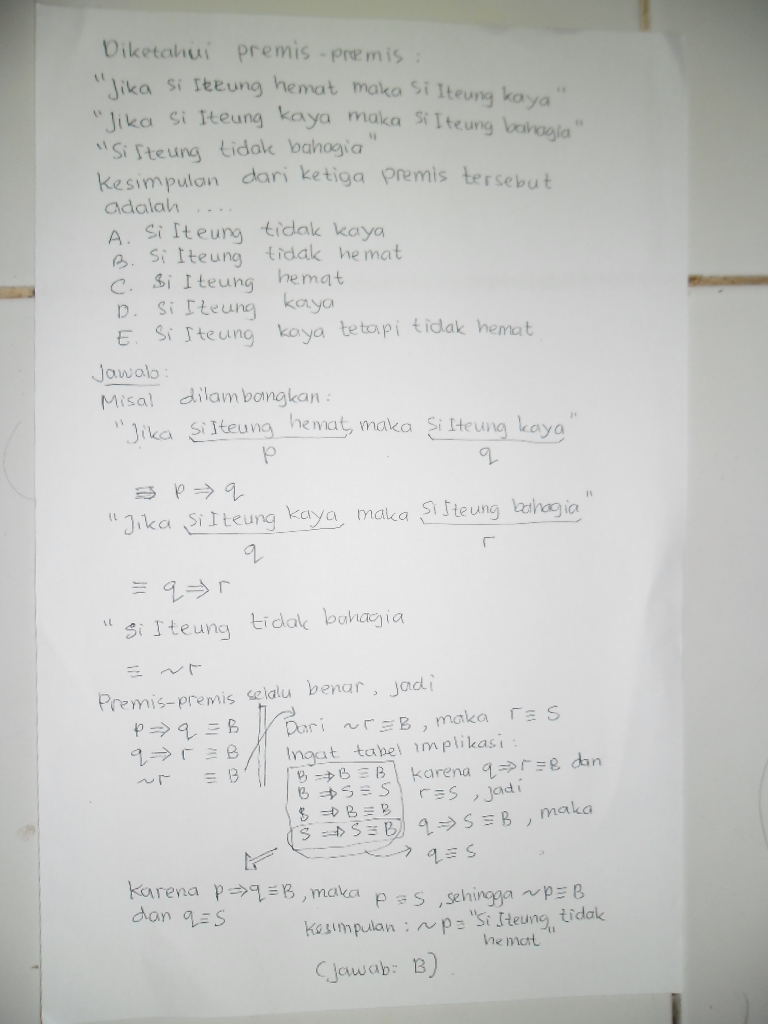 Diketahui premis-premis :
"Jika si Iteung hemat maka si Iteung kaya"
"Jika si Iteung kaya maka si Iteung bahagia"
"Si Iteung tidak bahagia"
Kesimpulan dari ketiga premis tersebut
adalah ....
A. Si Iteung tidak kaya
B. Si Iteung tidak hemat
C. Si Iteung hemat
D. Si Iteung kaya
E. Si Iteung kaya tetapi tidak hemat
Jawab:
Misal dilambangkan :
"Jika si Iteung hemat, maka si Iteung kaya"
p q
≡ p ⇒ q
"Jika si Iteung kaya maka si Iteung bahagia"
q r
≡ q ⇒ r
"Si Iteung tidak bahagia
≡ ~r
Premis-premis selalu benar, jadi
p ⇒ q ≡ B
q ⇒ r ≡ B
~r ≡ B
Dari ~r ≡ B, maka r ≡ S
Ingat tabel implikasi :
B ⇒ B ≡ B
B ⇒ S ≡ S
S ⇒ B ≡ B
S ⇒ S ≡ B
karena q ⇒ r ≡ B dan
r ≡ S, jadi
q ⇒ S ≡ B, maka
q ≡ S
Karena p ⇒ q ≡ B, maka p ≡ S, sehingga ~p ≡ B
dan q ≡ S
Kesimpulan : ~p = "Si Iteung tidak
hemat"
(Jawab: B)